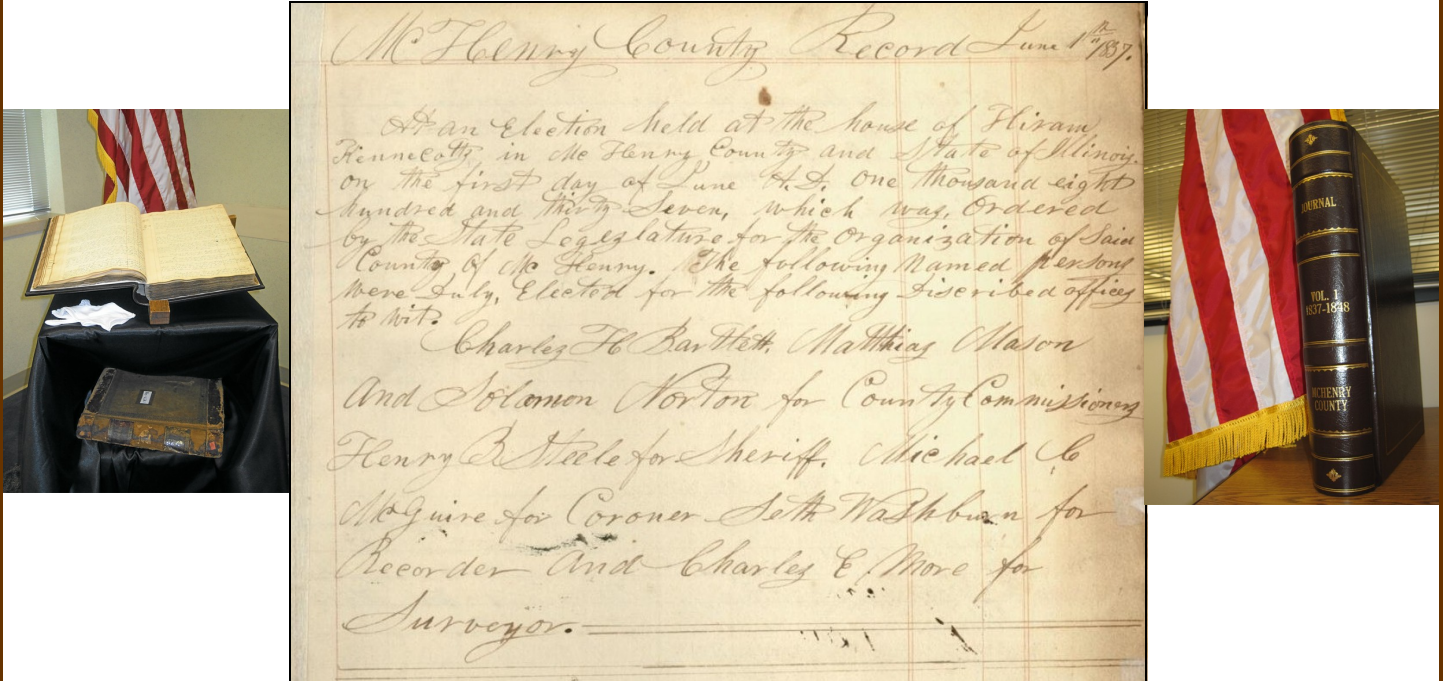 McHenry County Record June 1th 1837.
At an Election held at the house of Hiram
Kennecotts, in Mc Henry County and State of Illinois.
on the first day of June A.D. One thousand eight
hundred and thirty Seven, which was, Ordered
by the State Legeslature for the Organization of Said
County, of Mc Henry. The following Named Persons
were Duly, Elected for the following Discribed offices
to wit.
Charles H Bartlett, Matthias Mason
And Solomon Norton for County Commissioners
Henry B Steele for Sheriff. Michael C
McGuire for Coroner Seth Washburn for
Recorder And Charles E More for
Surveyor.
JOURNAL
VOL. 1
1837-1848
MCHENRY
COUNTY